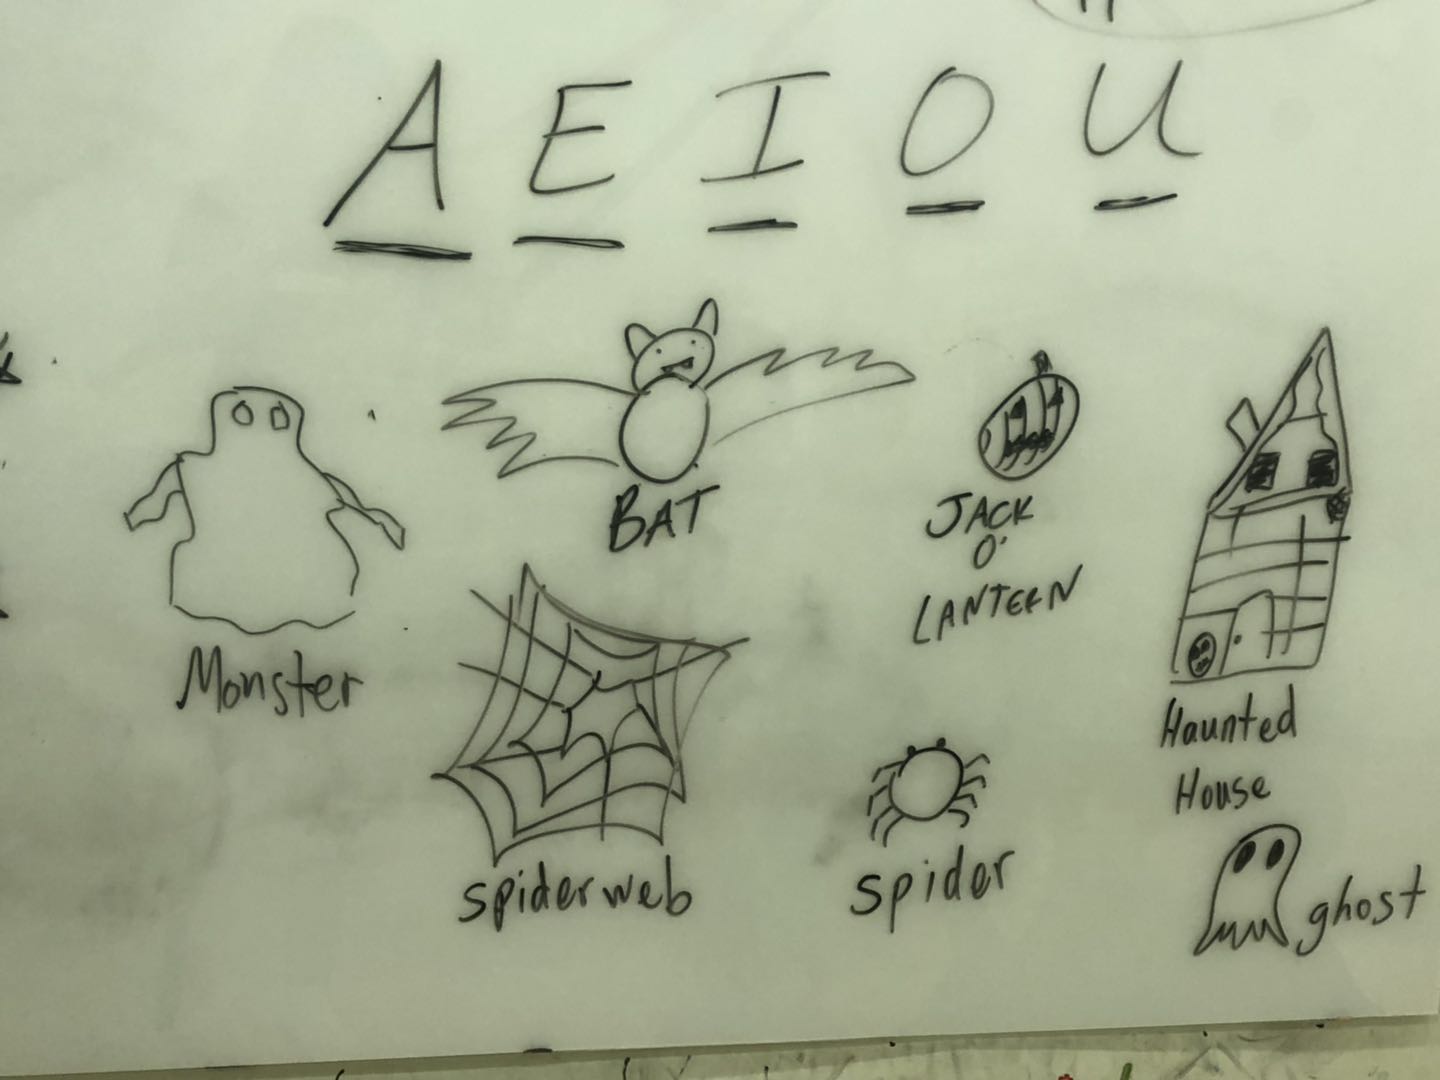 A E I O U
BAT
JACK
O'
LANTERN
Monster
Haunted
House
spiderweb
spider
ghost